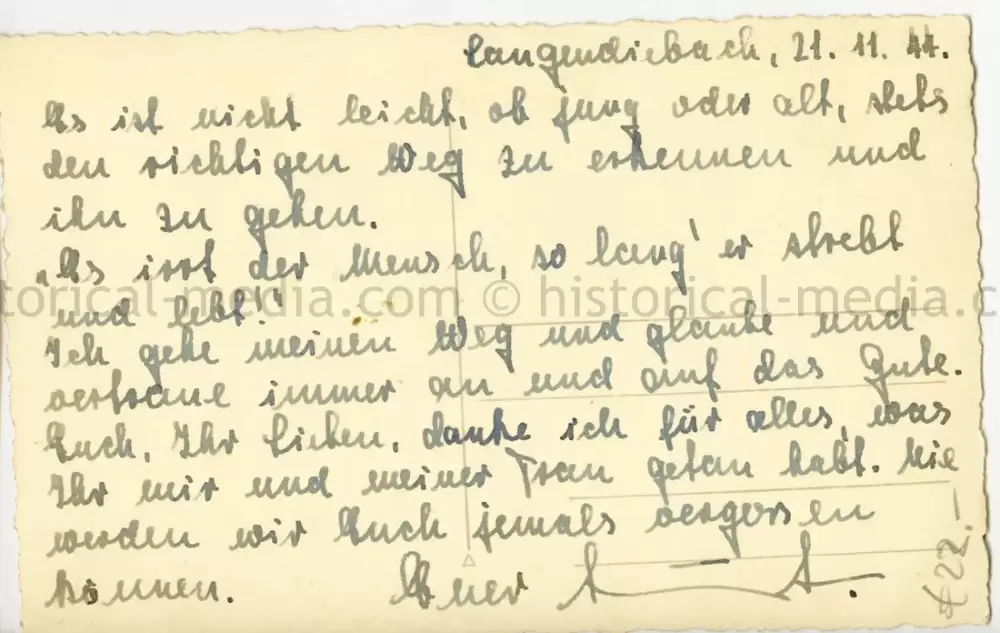 Langendiebach, 21. 11. 44.
Es ist nicht leicht, ob jung oder alt, stets
den richtigen Weg zu erkennen und
ihn zu gehen.
„Es irrt der Mensch, so lang' er strebt
torical-media.com © historical-media.c
und lebt!"
Ich gehe meinen Weg und glaube und
vertraue immer an und auf das Gute.
Euch, Ihr Lieben, danke ich für alles, was
Ihr mir und meiner Frau getan habt. Nie
werden wir Euch jemals vergessen
können. Euer
€ 22.-